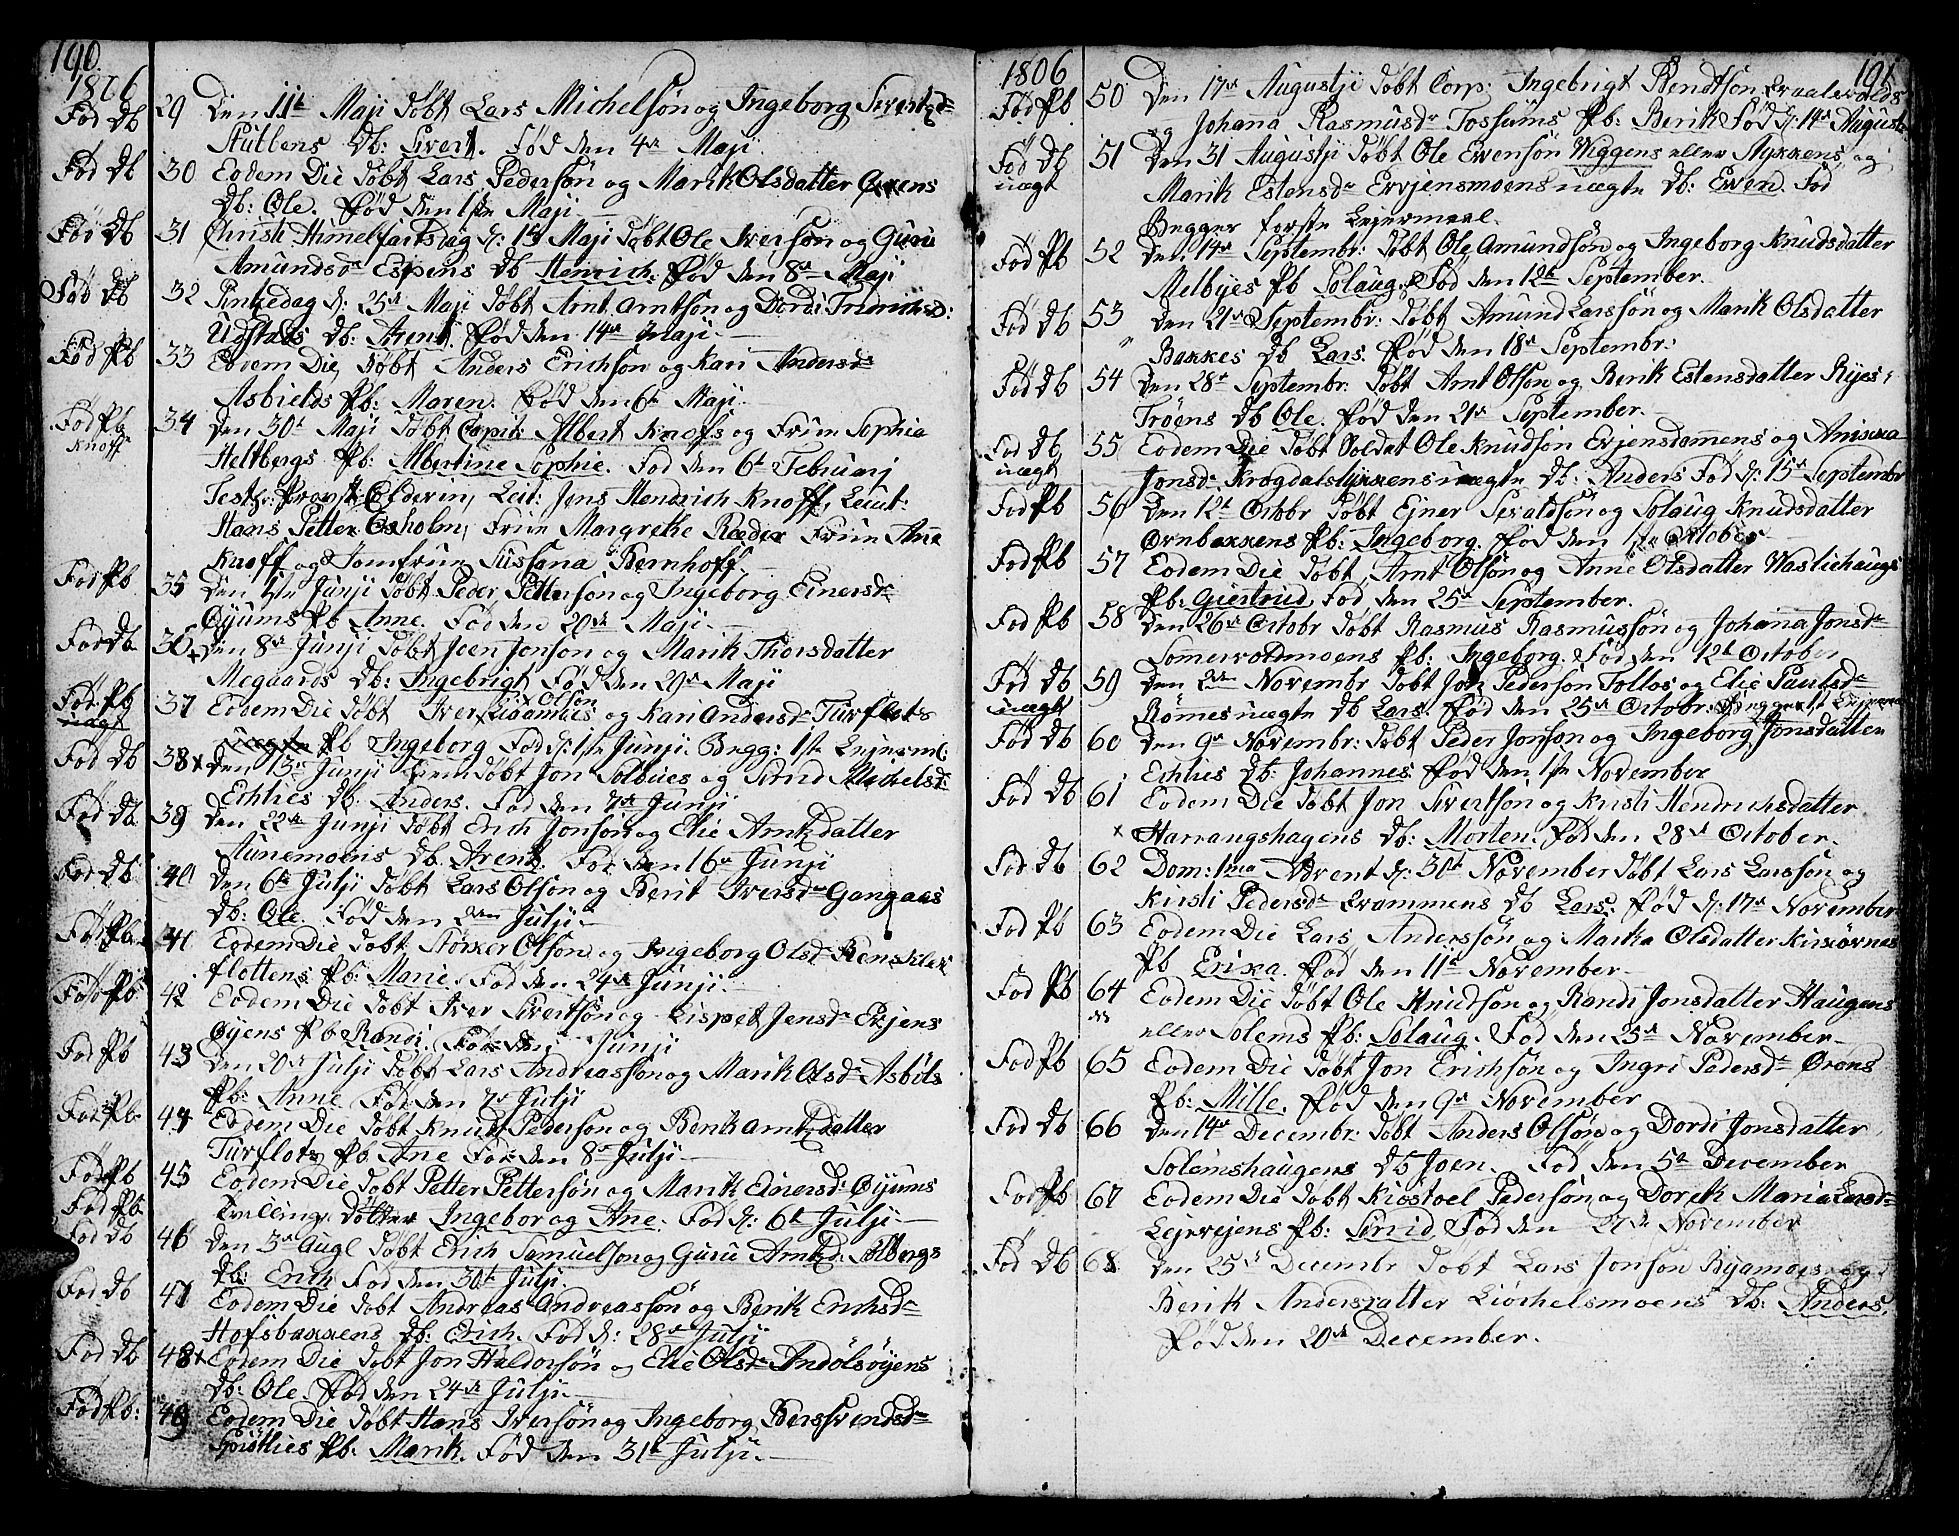 190.
1806
Fød Db 29 Den 11t Maji døbt Lars Michelsøn og Ingeborg Sivertsd:
Stullens Db: Sivert. Fød den 4de Maji
Fød Db 30 Eodem Die døbt Lars Pedersøn og Marit Olsdatter
Db: Ole. Fød den 1ste Maji
Fød Db 31 Christi Himmelfartsdag d: 15 Maji døbt Ole Iversøn og Guru
Amundsd: Espens Db Henrich. Fød den 8de Maji
Fød Db 32 Pintzedag d: 25de Maji døbt Arnt Arntsøn og Dordi
Udstads Db: Arent. Fød den 14de Maji
Fød Pb 33 Eodem Die døbt Anders Erichsøn og Kari Andersd:
Asbields Pb: Maren. Fød den 6te Maji
Fød Pb 34 Den 30t Maji døbt Capit: Albert Knoffs og Frue Sophia
Knoff
Heltbergs Pb: Albertine Sophie. Fød den 6t Februarj
Test: Provst Oldevin, Leit: Jens Hendrich Knoff, Leiut:
Hans Petter Oxholm, Frue Margrethe Ræder Frue Ane
Knoff og Jomfrue Sussana Bernhoff.
Fød Pb 35 Den 1ste Junji døbt Peder Pettersøn og Ingeborg Einersd:
Øyums Pb Anne. Fød den 20de Maji
Fød Db 36 Den 8de Junji døbt Joen Jonsøn og Marit Thorsdatter
Megaards Db: Ingebrigt Fød den 29de Maji
Fød Pb 37 Eodem Die døbt Iver Olsøn og Kari Andersd: Turflots
uægt
uægte Pb Ingeborg Fød d: 1ste Junji. Begg: 1ste Leierm:
Fød Db 38 Den 13de Junji døbt Jon Solbues og Sirud Michelsd:
Echlies Db: Anders. Fød den 7de Junji
Fød Db 39 Den 22de Junji døbt Erich Jonsøn og Elie Arntzdatter
Aunemoens Db. Arent. Fød den 16de Junji
Fød Db 40 Den 6te Julji døbt Lars Olsøn og Berit Iversd: Gangaaes
Db: Ole. Fød den 2den Julji
Fød Pb 41 Eodem Die døbt Størker Olsøn og Ingeborg Olsd:
flottens Pb: Marie. Fød den 24de Junji
Fød Pb 42 Eodem Die døbt Iver Sivertsøn og Lispet Jensd: Evjens
Øyens Pb Randi. Fød den Junji
Fød Pb 43 Den 20de Julji døbt Lars Andreassøn og Marit Olsd: Asbiels
Pb: Anne Fød den 7de Julji
Fød Pb 44 Eodem Die døbt Knud Pedersøn og Berit Arntzdatter
Turflots Pb Ane Fød den 8de Julji
Fød Pb 45 Eodem Die døbt Petter Pettersøn og Marit Einersd: Øyums
Fød Pb Tvilling døtter Ingebor og Ane. Fød d: 6t Julji
Fød Db 46 Den 3de Augl døbt Erich Samuelsøn og Guru Arntzd: Solbergs
Pb: Erich Fød den 30t Julji.
Fød Db 47 Eodem Die døbt Andreas Andreassøn og Berit Erichsd:
Hofsbakkens Db: Erich. Fød d: 28de Julji
Fød Db 48 Eodem Die døbt Jon Haldorsøn og Elie Olsd: Indølsøyens
Db: Ole. Fød den 24de Julji
Fød Pb: 49 Eodem Die døbt Hans Iversøn og Ingeborg Berssvendsd:
Pb: Marit. Fød den 31t Julji.
191
1806
Fød Pb 50 Den 17de Augustji døbt Corp: Ingebrigt Bendtsøn
og Johanna Rasmusd: Fossums Pb: Berit Fød d: 14de August
Fød Db 51 Den 31 Augustji døbt Ole Evensøn Wiggens eller Stykkens, og
uægt
Marit Estensd: Evjensmoens uægte Db: Even. Fød
Begges første Leiermaal.
Fød Pb 52 Den 14de Septembr: døbt Ole Amundsøn og Ingeborg Knudsdatter
Melbyes Pb Solaug. Fød den 12te September.
Fød Db 53 Den 21de Septembr: døbt Amund Larssøn og Marit Olsdatter
Bakkes Db Lars. Fød den 18de Septembr:
Fød Db 54 Den 28de Septembr: døbt Arnt Olsøn og Berit Estensdatter Ryes-
Trøens Db Ole. Fød den 21de September.
Fød Db 55 Eodem Die døbt Soldat Ole Knudsøn Evjensdammens og Anikka
uægt
Jonsd: Krogdalstykkens uægte Db: Anders Fød d: 15de Septembr
Fød Pb 56 Den 12t Octbr døbt Ejner Sevaldsøn og Solaug Knudsdatter
Ørnbakkens Pb: Ingeborg. Fød den 1ste October
Fød Pb 57 Eodem Die døbt Arnt Olsøn og Anne Olsdatter Wasliehaugs
Pb: Giertrud Fød den 25de September.
Fød Pb 58 Den 26de Octobr døbt Rasmus Rasmussøn og Johana Jonsd:
Sommervoldmoens Pb: Ingeborg. Fød den 12t October
Fød Db 59 Den 2den Novembr døbt Jon Pedersøn Follos og Elie Paulsd:
uægt
Rømmes uægte Db Lars. Fød den 25de Octobr.
Fød Db 60 Den 9de Novembr: døbt Peder Jonsøn og Ingeborg Jonsdatter
Echlies Db: Johannes. Fød den 1ste November
Fød Db 61 Eodem Die døbt Jon Sivertsøn og Kirsti Hendrichsdatter
x Harrangshagens Db: Morten. Fød den 28de October.
Fød Db 62 Dom: 1ma Advent d: 30t November døbt Lars Larssøn og
Kirsti Pedersd: Qvammens Db Lars. Fød d: 17de November
Fød Pb 63 Eodem Die Lars Anderssøn og Marita Olsdatter
Pb Erixa. Fød den 11t November
Fød Pb 64 Eodem Die døbt Ole Knudsøn og Randi Jonsdatter Haugens
eller Solems Pb: Solaug. Fød den 23de November
Fød Pb 65 Eodem Die døbt Jon Erichsøn og Ingri Pedersd: Ørens
Pb: Mille. Fød den 9de November
Fød Db 66 Den 14de Decembr: døbt Anders Olsøn og Dordi Jonsdatter
Solemshaugens Db Joen. Fød den 5te December
Fød Pb 67 Eodem Die døbt Kiøstoel Pedersøn og Dorit Maria Larsd:
Leervejens Pb: Sirid Fød den 27de November
Fød Db 68 Den 25de Decembr døbt Lars Jonsøn Ryamoes og
Berit Andersdatter Liøchelsmoens Db: Anders.
Fød den 20de December.